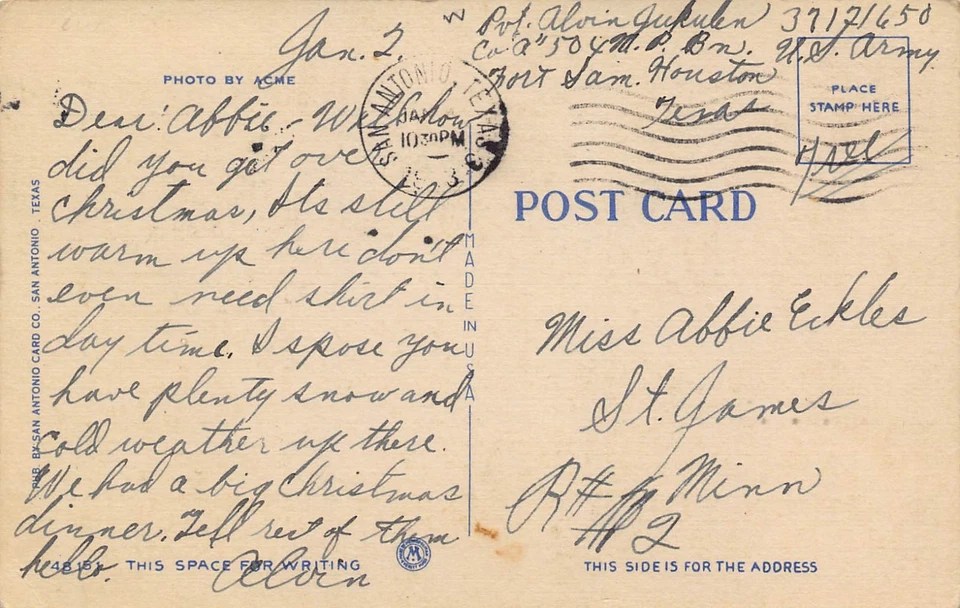 Jan. 2.
PHOTO BY ACME
Dear Abbie - Well how
did you get over
christmas, Its still
warm up here don't
even need shirt in
day time. I spose you
have plenty snow and
cold weather up there.
We had a big Christmas
dinner. Tell rest of them
hello. Alvin
THIS SPACE FOR WRITING
PUB. BY SAN ANTONIO CARD CO., SAN ANTONIO, TEXAS
MADE IN USA
SAN ANTONIO, TEXAS
1030PM
Pvt. Alvin 37171650
Co "A" 504 M.P. Bn. U.S. Army
Fort Sam. Houston
Texas
PLACE
STAMP HERE
Free
POST CARD
Miss Abbie Eckles
St. James
Minn
R# 2
THIS SIDE IS FOR THE ADDRESS